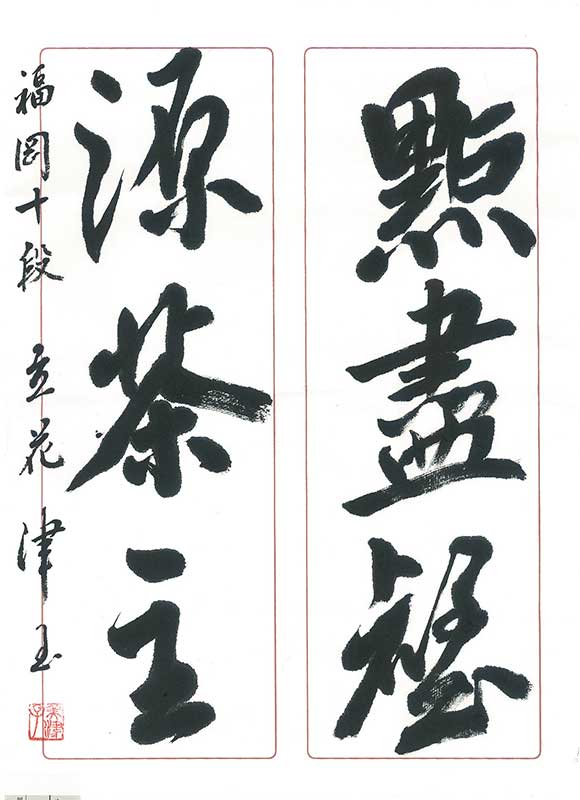 點盡壑
源茶主
福岡十段 立花津玉